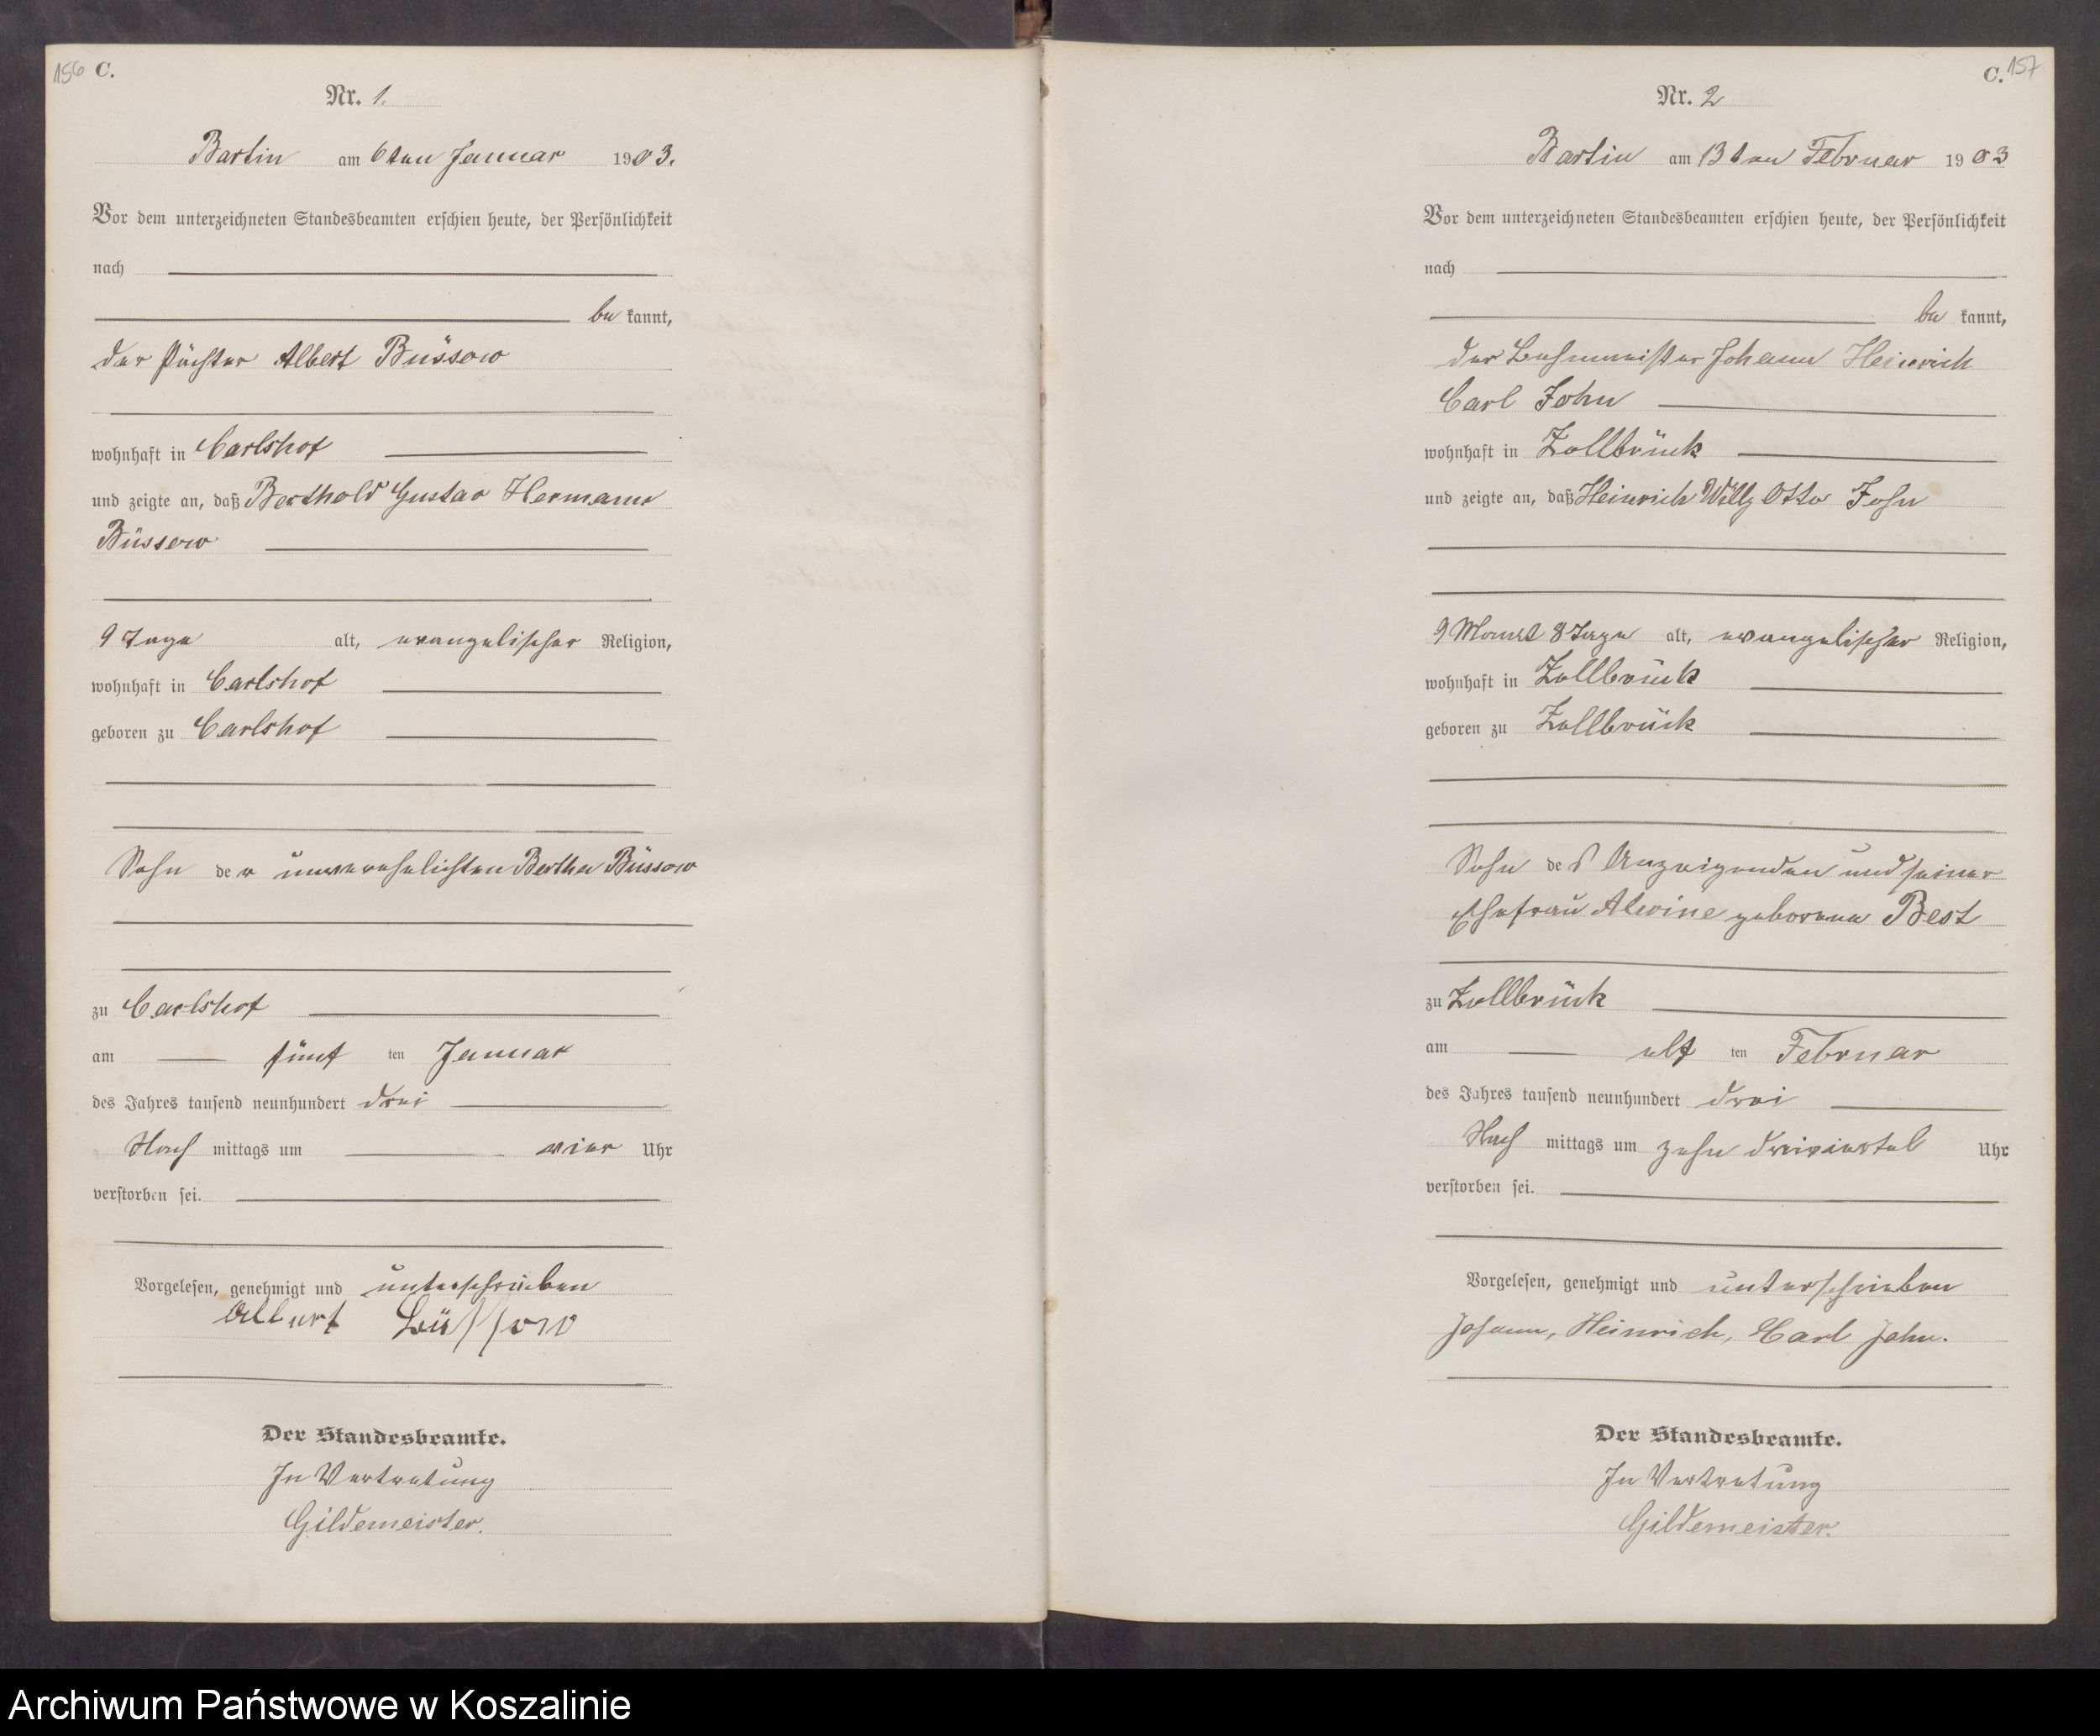 156 C.
Nr. 1.
Bartin am 6ten Januar 1903.
Vor dem unterzeichneten Standesbeamten erschien heute, der Persönlichkeit
nach
be kannt,
der Pächter Albert Büssow
wohnhaft in Carlshof
und zeigte an, daß Berthold Gustav Hermann
Büssow
9 Tage alt, evangelischer Religion,
wohnhaft in Carlshof
geboren zu Carlshof
Sohn der unverehelichten Bertha Büssow
zu Carlshof
am fünf ten Januar
des Jahres tausend neunhundert drei
Nach mittags um vier Uhr
verstorben sei.
Vorgelesen, genehmigt und unterschrieben
Albert Büssow
Der Standesbeamte.
In Vertretung
Gildemeister.
C. 157
Nr. 2
Bartin am 13ten Februar 1903
Vor dem unterzeichneten Standesbeamten erschien heute, der Persönlichkeit
nach
be kannt,
der Johann Heinrich
Carl John
wohnhaft in Zollbrück
und zeigte an, daß Heinrich Willy Otto John
9 Monat 8 Tage alt, evangelischer Religion,
wohnhaft in Zollbrück
geboren zu Zollbrück
Sohn des Anzeigenden und seiner
Ehefrau Alwine geborene Best
zu Zollbrück
am elf ten Februar
des Jahres tausend neunhundert drei
Nach mittags um zehn dreiviertel Uhr
verstorben sei.
Vorgelesen, genehmigt und unterschrieben
Johann, Heinrich, Carl John.
Der Standesbeamte.
In Vertretung
Gildemeister.
Archiwum Państwowe w Koszalinie